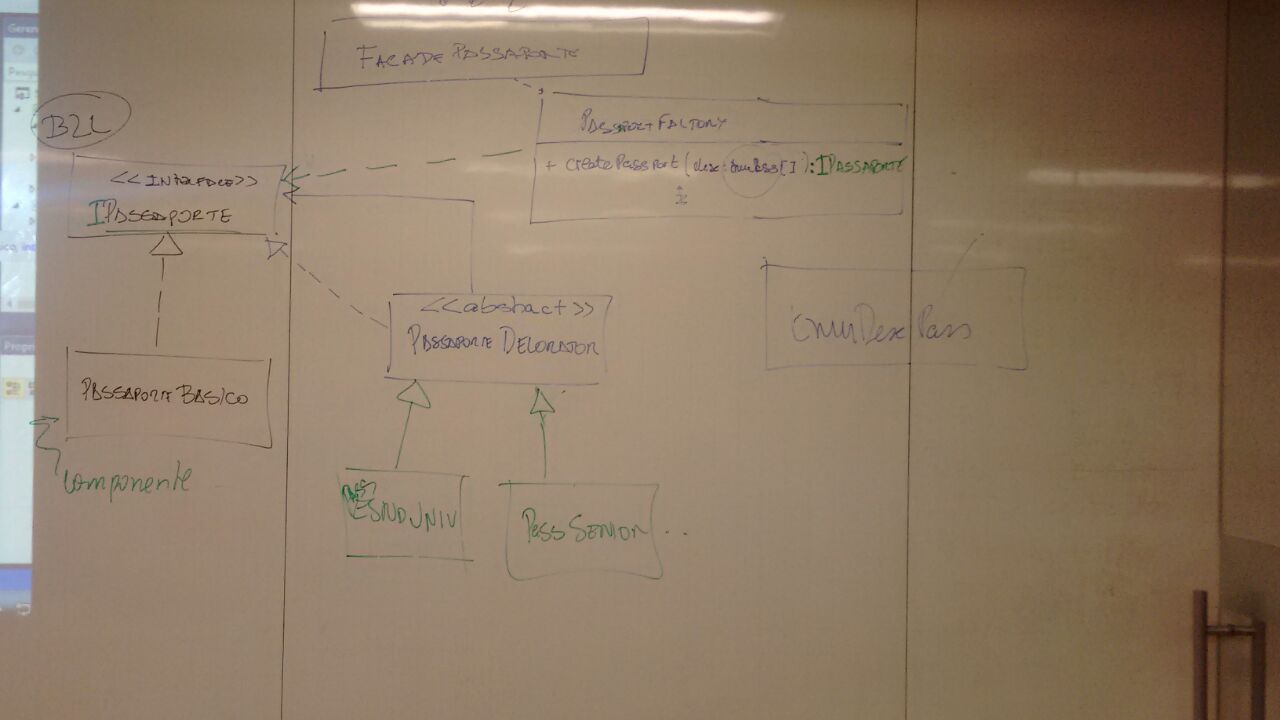 FACADE PASSAPORTE
B2L
PASSPORT FACTORY
+ createPassport (desc: EnumPass[]): IPASSAPORTE
<<INTERFACE>>
IPASSAPORTE
<<abstract>>
PASSAPORTE DECORATOR
EnumDesc Pass
PASSAPORTE BASICO
componente
ESNDUNIV
Pass SENIOR ..